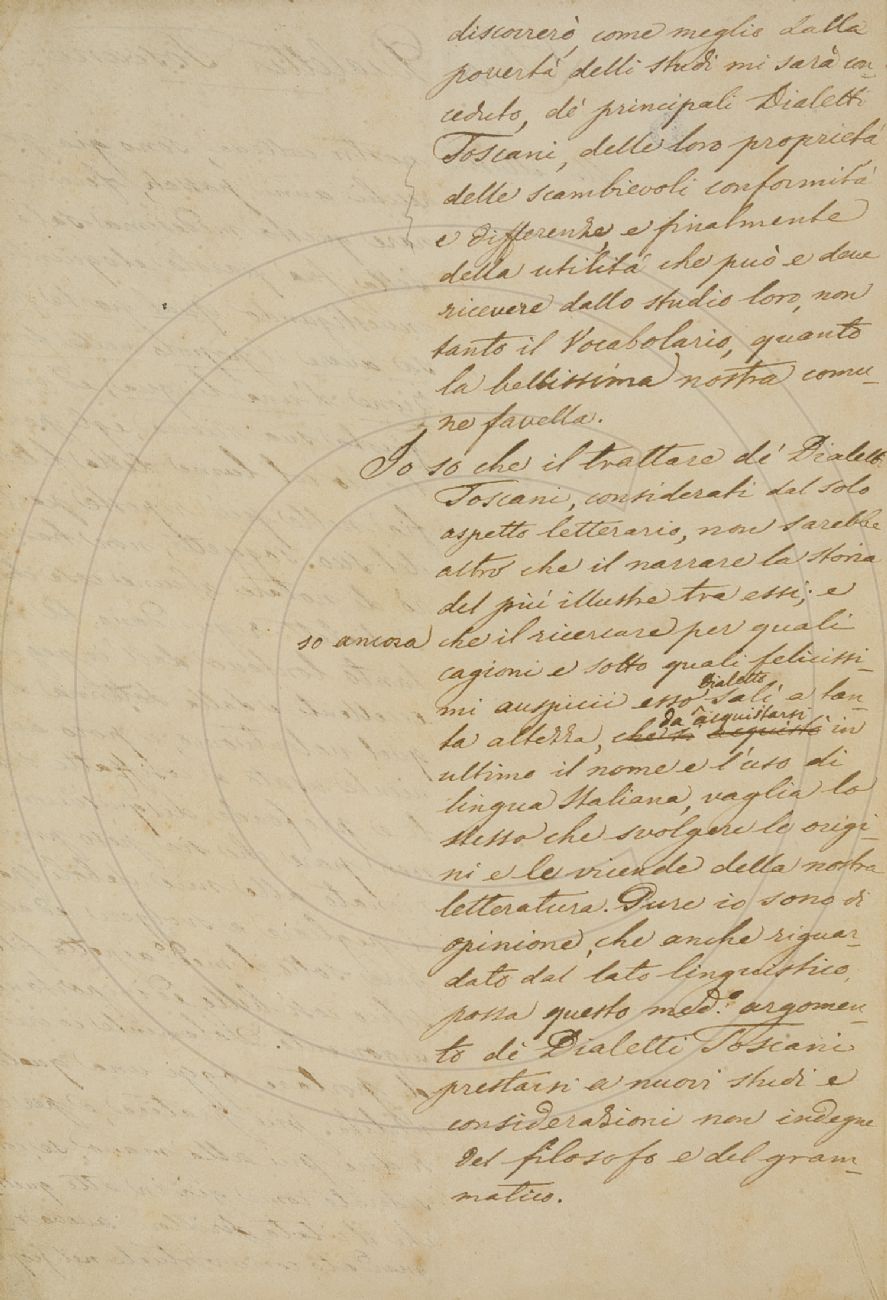 discorrerò, come meglio dalla
povertà delli studi mi sarà con-
ceduto, de' principali Dialetti
Toscani, delle loro proprietà,
delle scambievoli conformità
e differenze, e finalmente
della utilità che può e deve
ricevere dallo studio loro, non
tanto il Vocabolario, quanto
la bellissima nostra comu-
ne favella.
Io so che il trattare de' Dialetti
Toscani, considerati dal solo
aspetto letterario, non sarebbe
altro che il narrare la storia
del più illustre tra essi; e
so ancora che il ricercare per quali
cagioni e sotto quali felicissi-
dialetto
mi auspicii esso salì a tan-
da acquistarsi
ta altezza, che si acquistò in
ultimo il nome e l'uso di
lingua Italiana, vaglia lo
stesso che svolgere le origi-
ni e le vicende della nostra
letteratura. Pure io sono di
opinione, che anche riguar-
dato dal lato linguistico,
possa questo med.o argomen-
to de' Dialetti Toscani
prestarsi a nuovi studi e
considerazioni non indegne
del filosofo e del gram-
matico.